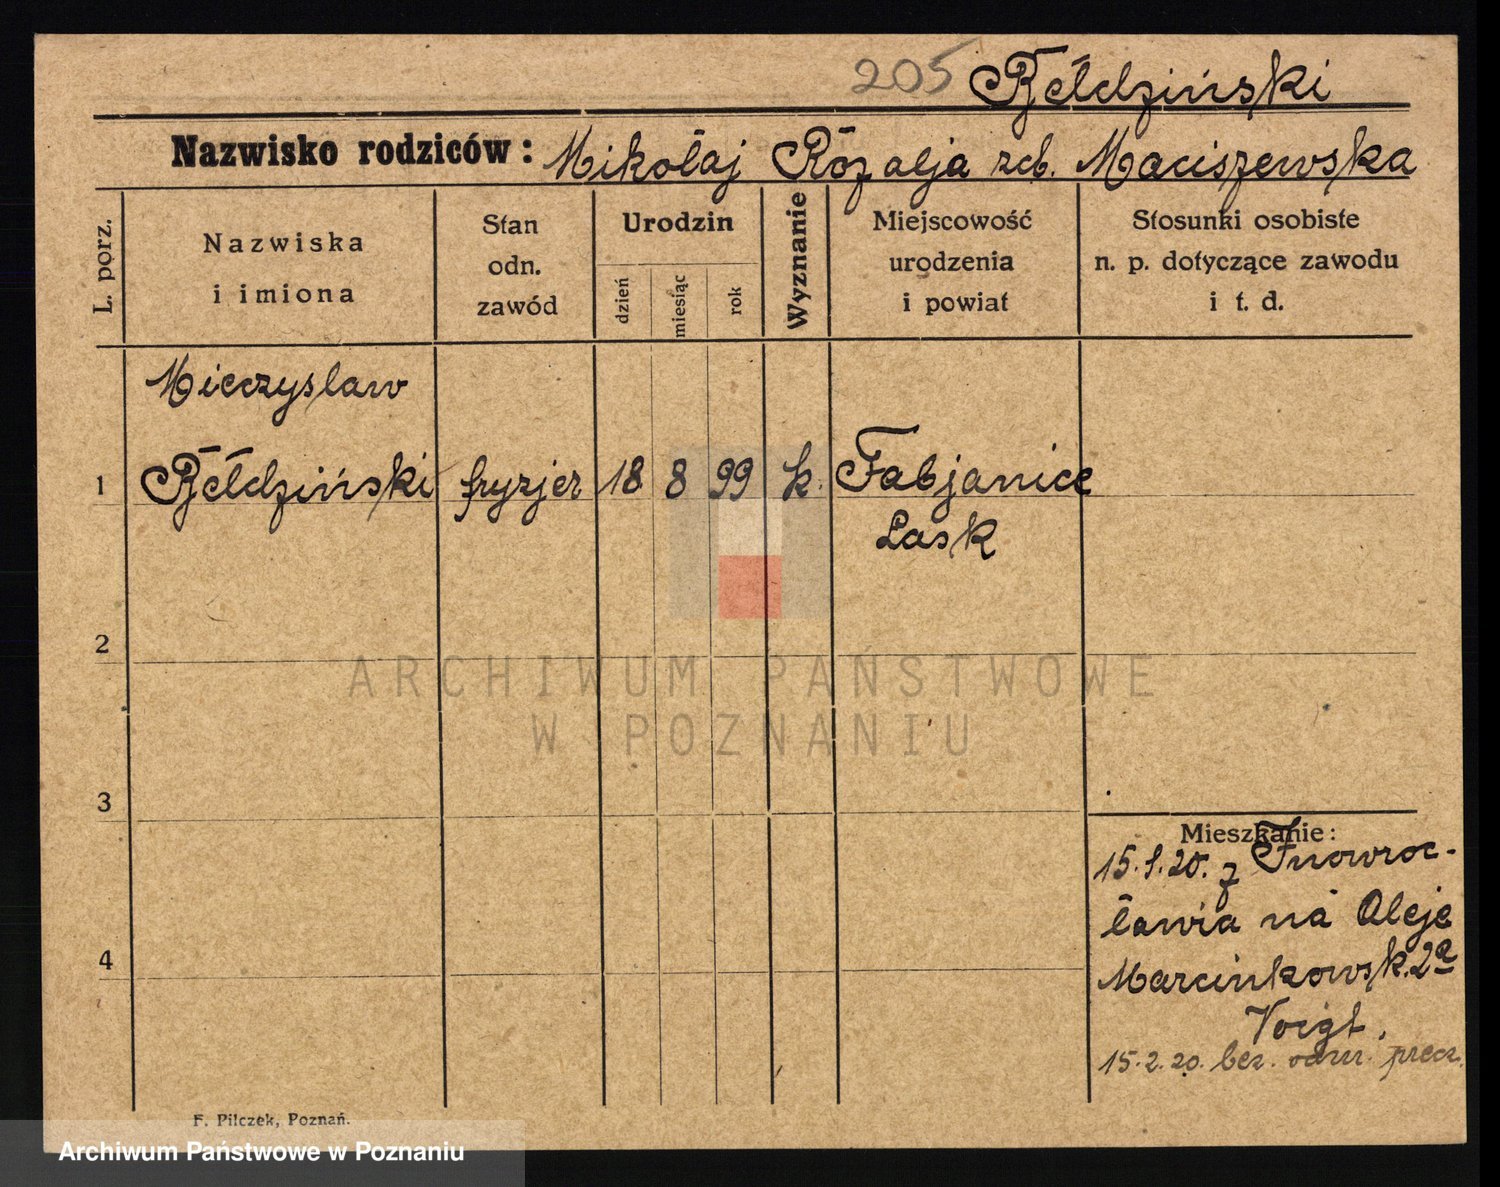 205 Bełdziński
Nazwisko rodziców: Mikołaj Rózalja zcb. Maciszewska
L. porz.
Nazwiska
i imiona
Stan
odn.
zawód
Urodzin
dzień
miesiąc
rok
Wyznanie
Miejscowość
urodzenia
i powiat
Stosunki osobiste
n. p. dotyczące zawodu
i t. d.
Mieczyslaw
1 Bełdziński fryzjer 18 8 99 k. Fabjanice
Lask
2
3
4
Mieszkanie:
15.1.20. z Inowroc-
ławia na Aleje
Marcinkowsk. 2a
Voigt.
15.2.20. bez. odm. precz.
F. Pilczek, Poznań.
ARCHIWUM PAŃSTWOWE
W POZNANIU
Archiwum Państwowe w Poznaniu